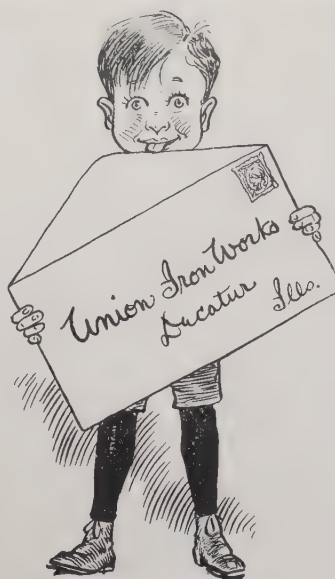 Union Iron Works
Ducatur Ills.